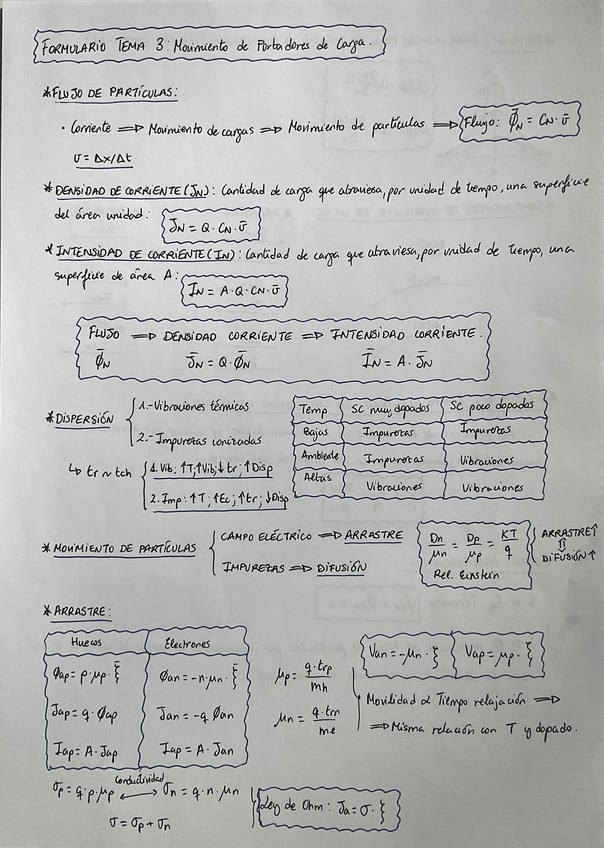 FORMULARIO TEMA 3: Movimiento de Portadores de Carga.
* FLUJO DE PARTÍCULAS:
· Corriente ⟹ Movimiento de cargas ⟹ Movimiento de partículas ⟹ Flujo: Φ̄N = CN · v̄
v = Δx/Δt
* DENSIDAD DE CORRIENTE (JN): Cantidad de carga que atraviesa, por unidad de tiempo, una superficie
del área unidad: J̄N = Q · CN · v̄
* INTENSIDAD DE CORRIENTE (IN): Cantidad de carga que atraviesa, por unidad de tiempo, una
superficie de área A: ĪN = A · Q · CN · v̄
FLUJO ⟹ DENSIDAD CORRIENTE ⟹ INTENSIDAD CORRIENTE.
Φ̄N J̄N = Q · Φ̄N ĪN = A · J̄N
* DISPERSIÓN
1.- Vibraciones térmicas
2.- Impurezas ionizadas
↳ tr ~ tch
1. Vib: ↑T; ↑Vib; ↓tr; ↑Disp
2. Imp: ↑T; ↑Ec; ↑tr; ↓Disp
Temp SC muy dopados SC poco dopados
Bajas Impurezas Impurezas
Ambiente Impurezas Vibraciones
Altas Vibraciones Vibraciones
* MOVIMIENTO DE PARTÍCULAS
CAMPO ELÉCTRICO ⟹ ARRASTRE
IMPUREZAS ⟹ DIFUSIÓN
Dn/μn = Dp/μp = KT/q
Rel. Einstein
ARRASTRE↑
⇕
DIFUSIÓN↑
* ARRASTRE:
Huecos Electrones
Φap = p · μp · ξ̄ Φan = -n · μn · ξ̄
Jap = q · Φap Jan = -q Φan
Iap = A · Jap Iap = A · Jan
μp = q · trp / mh
μn = q · trn / me
Van = -μn · ξ Vap = μp · ξ
Movilidad α Tiempo relajación ⟹
⟹ Misma relación con T y dopado.
Conductividad
σp = q · p · μp ⟷ σn = q · n · μn
σ = σp + σn
Ley de Ohm: Ja = σ · ξ